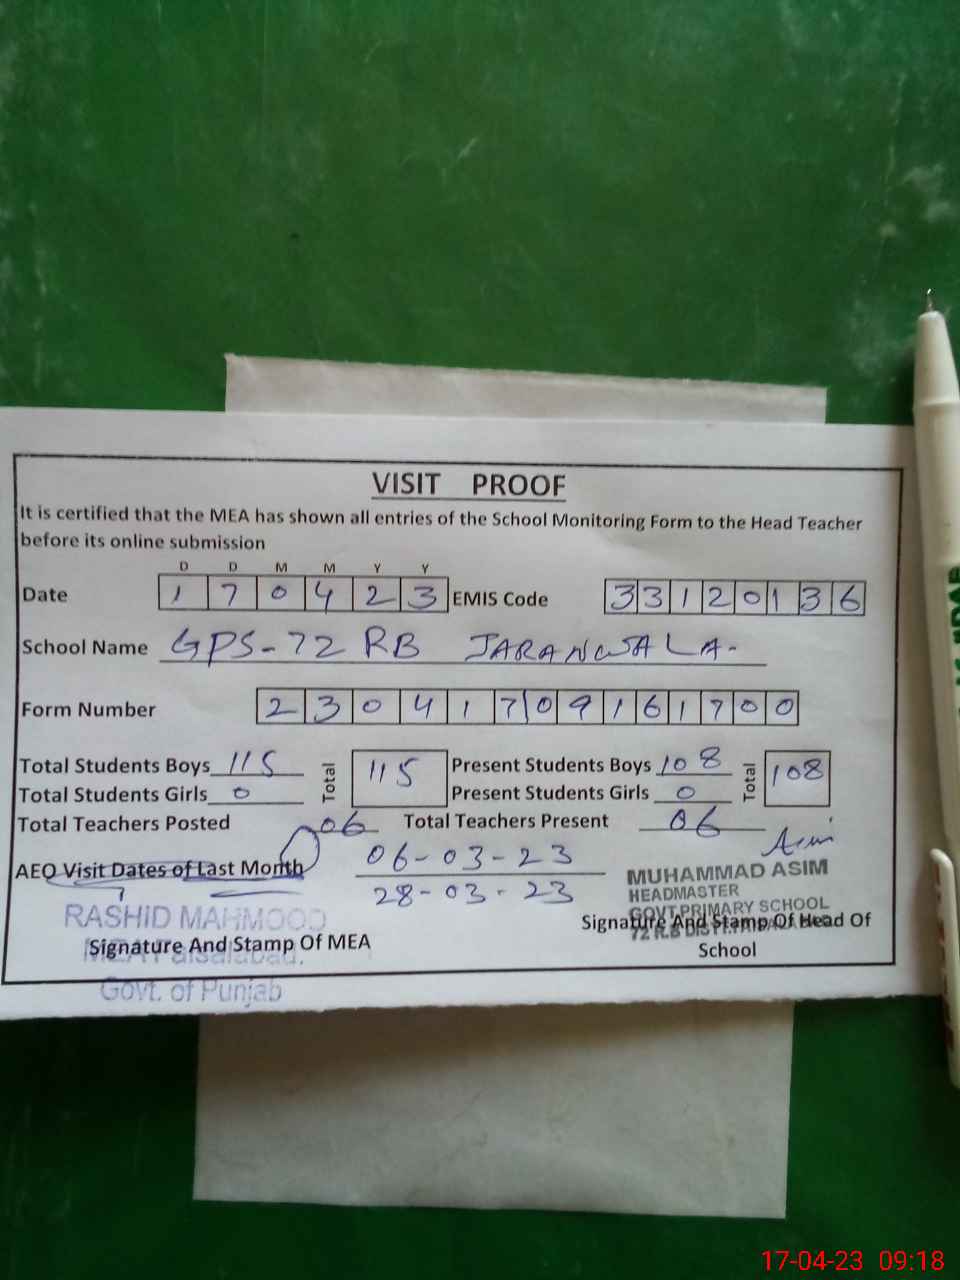 VISIT PROOF
It is certified that the MEA has shown all entries of the School Monitoring Form to the Head Teacher
before its online submission
D D M M Y Y
Date 1 7 0 4 2 3 EMIS Code 3 3 1 2 0 1 3 6
School Name GPS-72 RB JARANWALA-
Form Number 2 3 0 4 1 7 0 9 1 6 1 7 0 0
Total Students Boys 115 Total 115 Present Students Boys 108 Total 108
Total Students Girls 0 Present Students Girls 0
Total Teachers Posted 06 Total Teachers Present 06
AEO Visit Dates of Last Month 06-03-23
28-03-23
Asim
MUHAMMAD ASIM
HEADMASTER
GOVT.PRIMARY SCHOOL
72 R.B
RASHID MAHMOOD
MEA Faisalabad.
Govt. of Punjab
Signature And Stamp Of MEA
Signature And Stamp Of Head Of
School
17-04-23 09:18